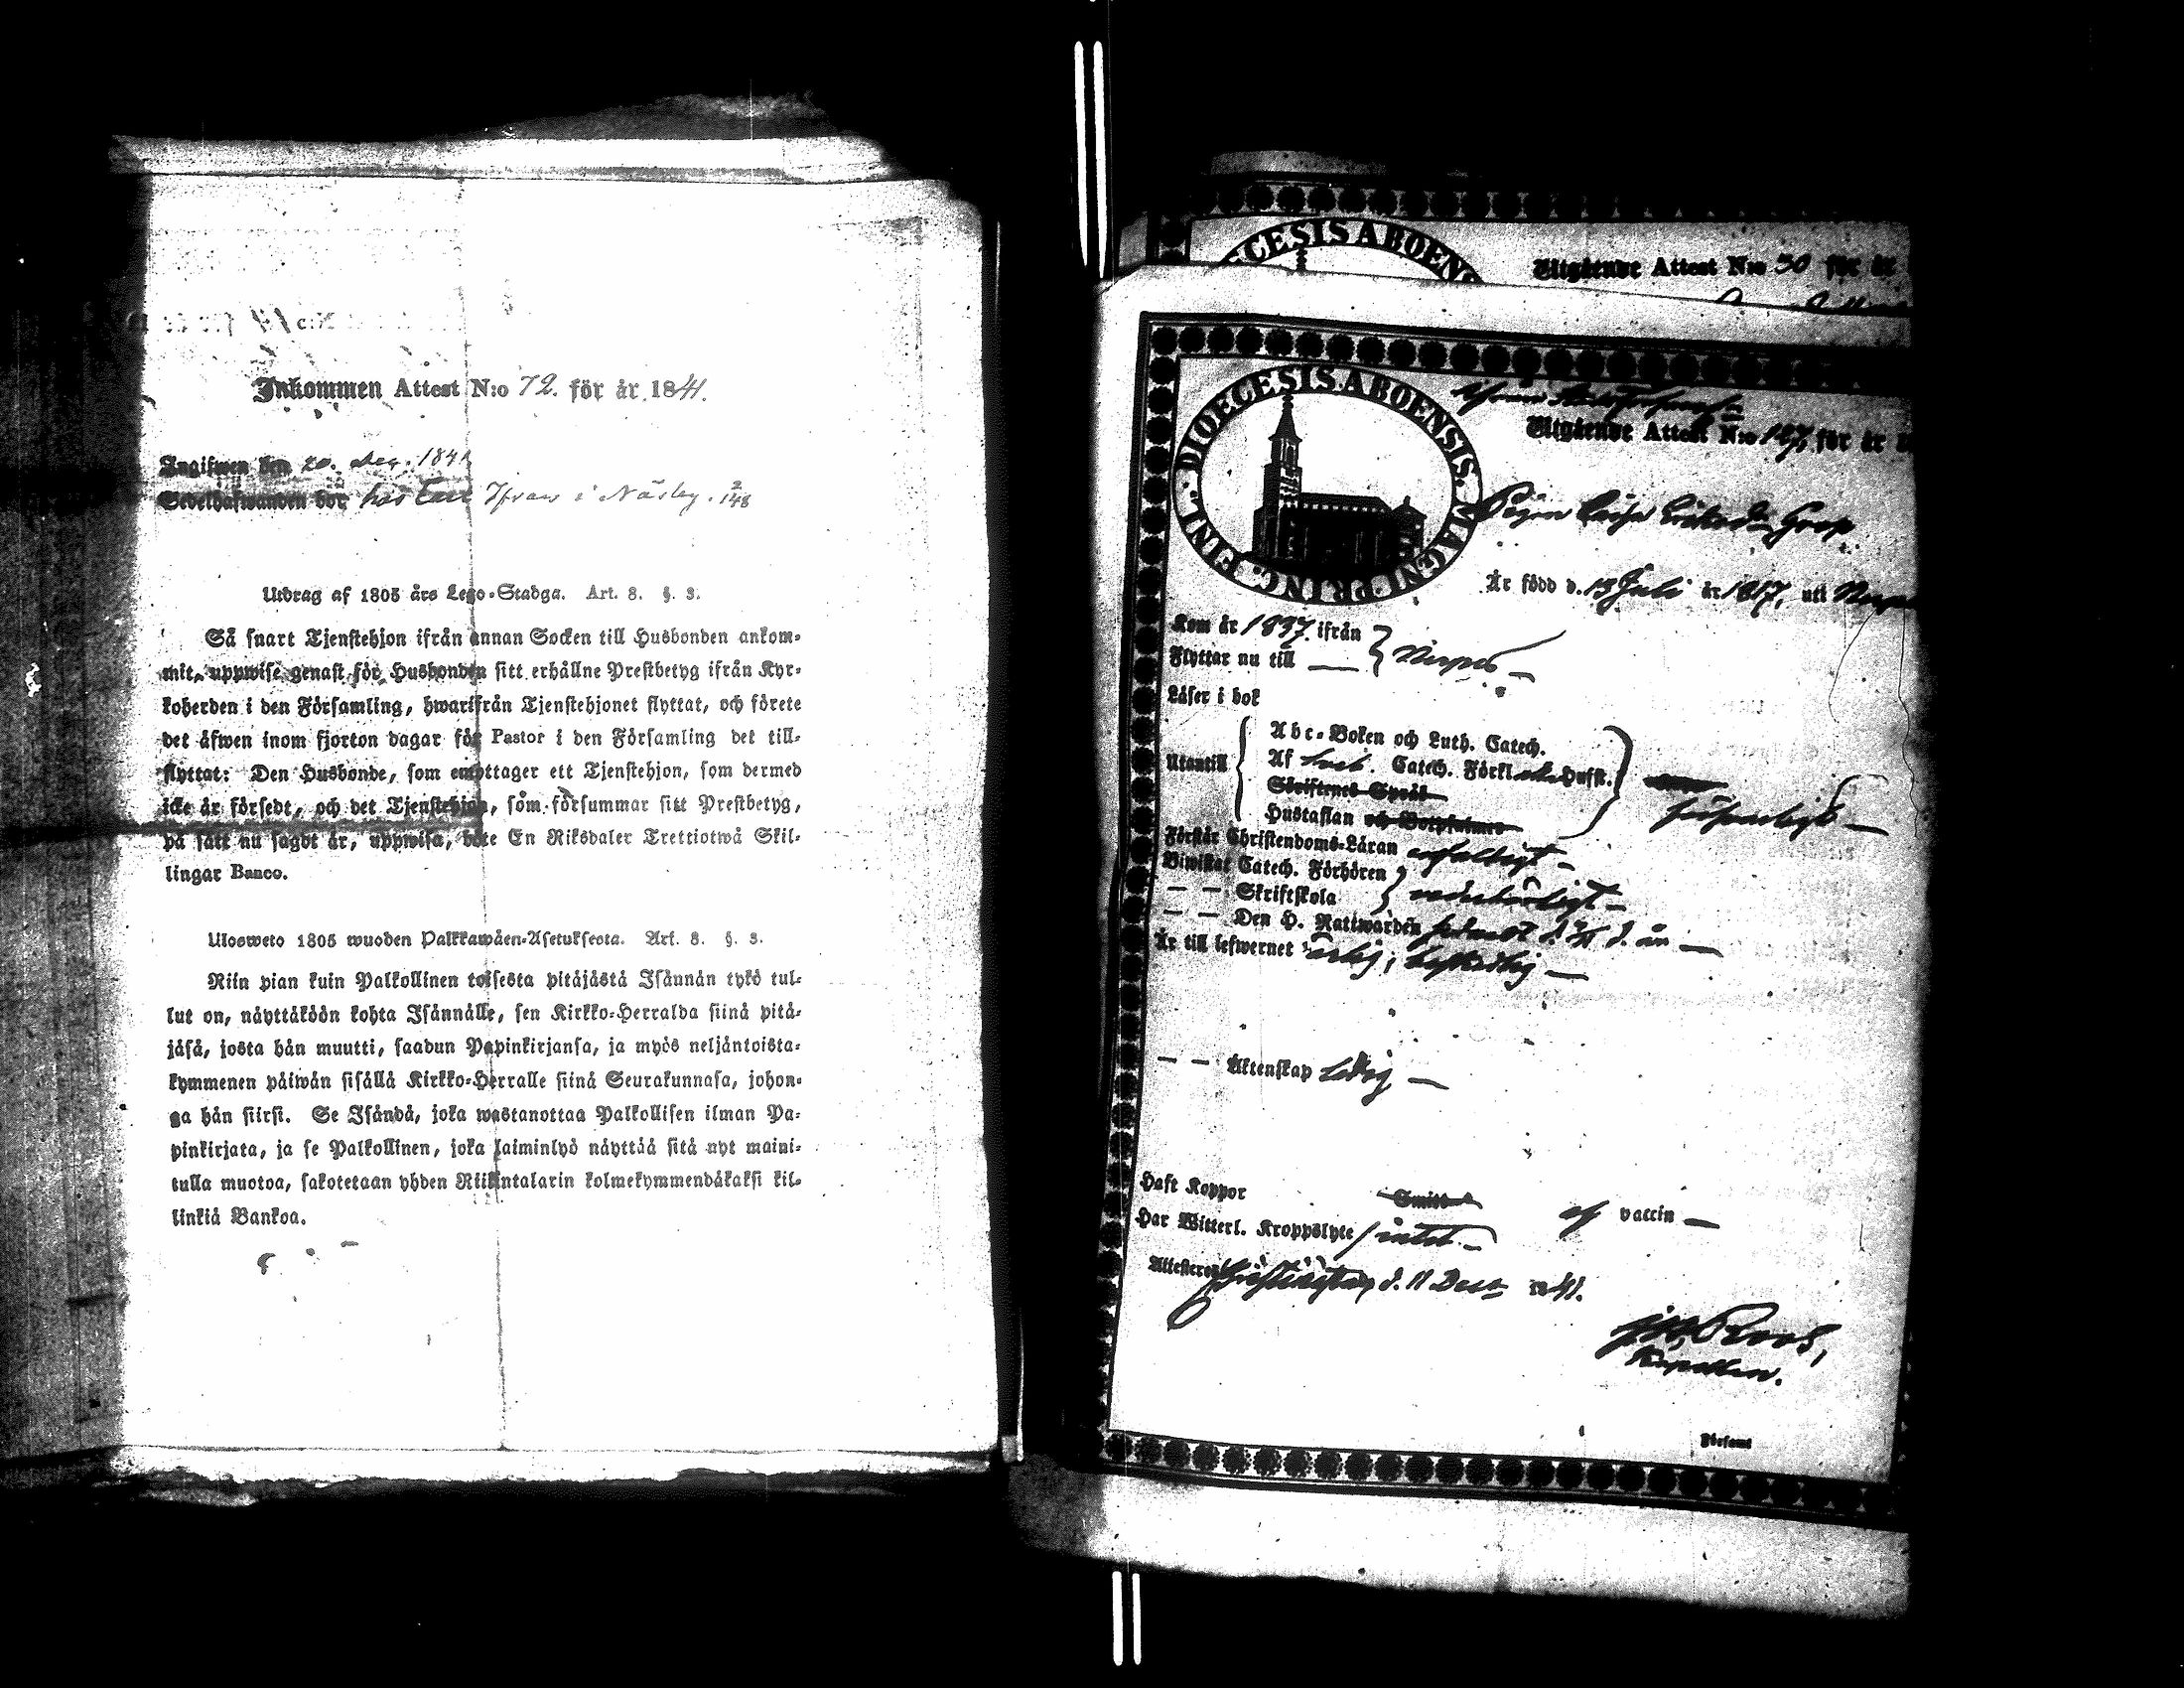 Inkommen Attest N:o 72. för år 1841.
Ingifwen den 20. Dec. 1841
Sedelhafwanden bor hos Ifvars i Näsby. 2/148
Utdrag af 1805 års Lego-Stadga. Art. 8. §. 3.
Så snart Tjenstehjon ifrån annan Socken till Husbonden ankom-
mit, uppwise genast för Husbonden sitt erhållne Prestbetyg ifrån Kyr-
koherden i den Församling, hwarifrån Tjenstehjonet flyttat, och förete
det äfwen inom fjorton dagar för Pastor i den Församling det till-
flyttat: Den Husbonde, som emottager ett Tjenstehjon, som dermed
icke är försedt, och det Tjenstehjon, som försummar sitt Prestbetyg,
på sätt nu sagdt är, uppwisa, böte En Riksdaler Trettiotwå Skil-
lingar Banco.
Ulosweto 1805 wuoden Palkkawåen-Asetuksesta. Art. 8. §. 3.
Niin pian kuin Palkollinen toisesta pitäjästä Isännän tykö tul-
lut on, näyttäköön kohta Isännälle, sen Kirkko-Herralda siinä pitä-
jäsä, josta hän muutti, saadun Papinkirjansa, ja myös neljäntoista-
kymmenen päiwän sisällä Kirkko-Herralle siinä Seurakunnasa, johon-
ga hän siirsi. Se Isändä, joka wastanottaa Palkollisen ilman Pa-
pinkirjata, ja se Palkollinen, joka laiminlyö näyttää sitä nyt maini-
tulla muotoa, sakotetaan yhden Riikintalarin kolmekymmendäkaksi kil-
linkiä Bankoa.
CESIS ABOENS
Utgående Attest N:o 50 för år
DIOECESIS ABOENSIS. MAGNI PRINC. FINL.
Utgående Attest N:o 127, för år
Pigan Caisa Ericsdr Groop
Är född d. 13 Juli år 1817, uti
Kom år 1837. ifrån
Flyttar nu till — Nerpes
Läser i bok
Utantill
Abc-Boken och Luth. Catech.
Af Sveb. Catech. Förkl. Husst.
Skriftenes Språk
Hustaflan och Botpsalmer
försvarligt
Förstår Christendoms-Läran enfaldigt
Biwistat Catech. Förhören
— — Skriftskola
— — Den H. Nattwarden d. år
Är till lefwernet ärlig, beskedlig
— — Äktenskap ledig
Haft Koppor Smitt af vaccin
Har Witterl. Kroppslyte intet
Attesteras Christinestad d. 11 Decr 1841.
Roos,
Kapellan.
Församl